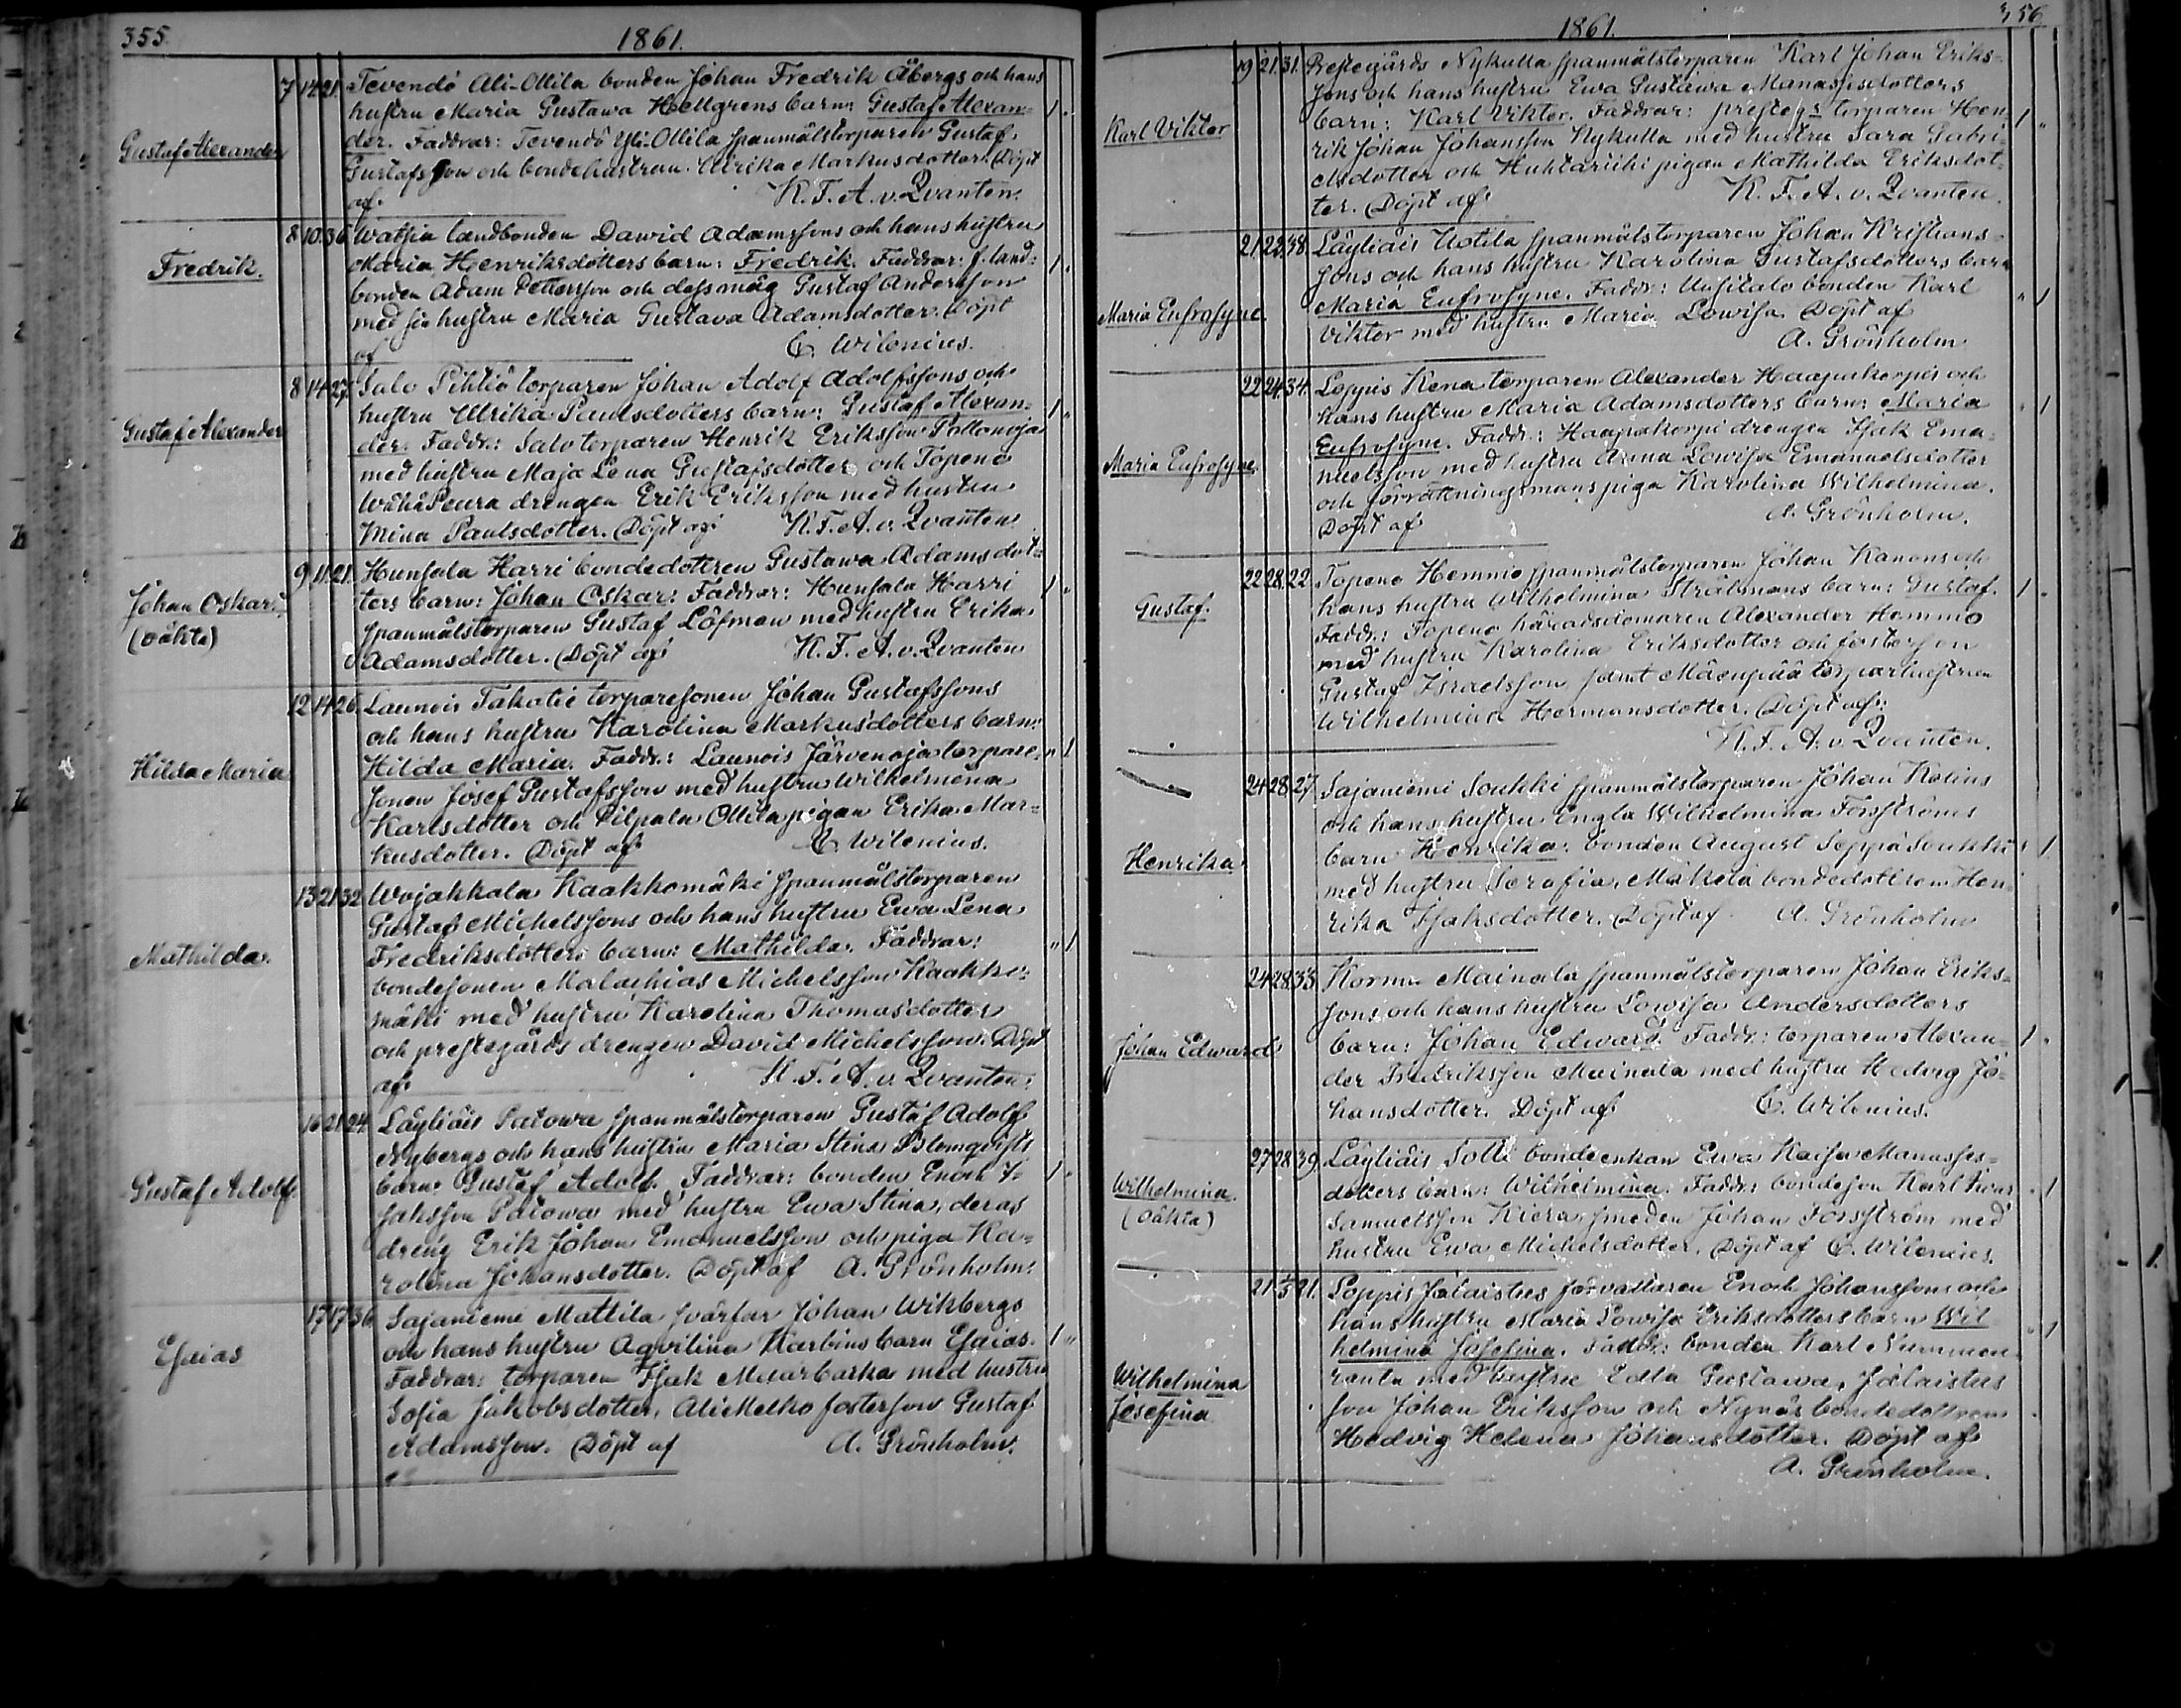 355.
1861.
Gustaf Alexander
7 14 21. Tevendö Ali-Ollila bonden Johan Fredrik Åbergs och hans
hustru Maria Gustawa Hellgrens barn: Gustaf Alexan- 1 "
der. Faddrar: Tevendö Yli-Ollila spanmålstorparen Gustaf
Gustafsson och bondehustrun Ulrika Markusdotter. Döpt
af K. F. A. v. Qvanten.
Fredrik.
8 10 36 Watsia landbonden Dawid Adamssons och hans hustru
Maria Henriksdotters barn: Fredrik. Faddrar: f. land- 1 "
bonden Adam Pettersson och dess måg Gustaf Andersson
med sin hustru Maria Gustava Adamsdotter. Döpt
af C. Wilenius.
Gustaf Alexander
8 14 27. Salo Pihtiö torparen Johan Adolf Adolfssons och
hustru Ulrika Paulsdotters barn: Gustaf Alexan- 1 "
der. Faddr.: Salo torparen Henrik Eriksson
med hustru Maja Lena Gustafsdotter och Topeno
drengen Erik Eriksson med hustru
Mina Paulsdotter. Döpt af K. F. A. v. Qvanten
Johan Oskar.
(oäkta)
9 11 21. Hunsala Harri bondedottren Gustawa Adamsdot-
ters barn: Johan Oskar. Faddrar: Hunsala Harri 1 "
spanmålstorparen Gustaf Löfman med hustru Erika
Adamsdotter. Döpt af K. F. A. v. Qvanten
Hilda Maria
12 14 26. Launois torparesonen Johan Gustafssons
och hans hustru Karolina Markusdotters barn:
Hilda Maria. Faddr.: Launois Järvenoja torpare- " 1
sonen Josef Gustafsson med hustru Wilhelmina
Karlsdotter och Pilpala Ollila pigan Erika Mar-
kusdotter. Döpt af C. Wilenius.
Mathilda.
13 21 32 Wojakkala Kaakkomäki spanmålstorparen
Gustaf Michelssons och hans hustru Ewa Lena
Fredriksdotters barn: Mathilda. Faddrar: " 1
bondesonen Malachias Michelsson Kaakko-
mäki med hustru Karolina Thomasdotter
och prestegårds drengen David Michelsson. Döpt
af K. F. A. v. Qvanten.
Gustaf Adolf.
16 21 24. Läyliäis Patowa spanmålstorparen Gustaf Adolf
Nybergs och hans hustru Maria Stina Blomqvists
barn: Gustaf Adolf. Faddrar: bonden Enoch I- 1 "
saksson Patowa med hustru Ewa Stina, deras
dreng Erik Johan Emanuelsson och piga Ka-
rolina Johansdotter. Döpt af A. Grönholm.
Esaias
17 17 36 Sajaniemi Mattila svärfar Johan Wikbergs
och hans hustru Aqvilina Karbins barn Esaias. 1 "
Faddrar: torparen Isak med hustru
Sofia Jakobsdotter, fosterson Gustaf
Adamsson. Döpt af A. Grönholm.
1861.
356
Karl Viktor
19 21 31. Prestegårds Nykulla spanmålstorparen Karl Johan Eriks-
sons och hans hustru Ewa Gustawa Manassesdotters
barn: Karl Viktor. Faddrar: presteg:s torparen Hen- 1 "
rik Johan Johansson Nykulla med hustru Sara Gabri-
elsdotter och pigan Mathilda Eriksdot-
ter. Döpt af K. F. A. v. Qvanten.
Maria Eufrosyne
21 22 38. Läyliäis Uotila spanmålstorparen Johan Kristians-
sons och hans hustru Karolina Gustafsdotters barn
Maria Eufrosyne. Faddr: Uusitalo bonden Karl " 1
Viktor med hustru Maria Lowisa. Döpt af
A. Grönholm
Maria Eufrosyne.
22 24 34. Loppis Kena torparen Alexander Haapakorpis och
hans hustru Maria Adamsdotters barn: Maria " 1
Eufrosyne. Faddr.: Haapakorpi drengen Isak Ema-
nuelsson med hustru Anna Lowisa Emanuelsdotter
och piga Karolina Wilhelmina.
Döpt af A. Grönholm.
Gustaf.
22 28 22. Topeno Hemmio spanmålstorparen Johan Kanons och
hans hustru Wilhelmina Strålmans barn: Gustaf. 1 "
Faddr.: Topeno häradsdomaren Alexander Hemmio
med hustru Karolina Eriksdotter och fosterson
Gustaf Israelsson samt torparhustrun
Wilhelmina Hermansdotter. Döpt af
K. F. A. v. Qvanten.
Henrika
24 28 27. Sajaniemi Soukki spanmålstorparen Johan Kalins
och hans hustru Engla Wilhelmina Forsströms
barn Henrika. bonden August Seppä Soukki " 1
med hustru Serafia, Mäkelä bondedottren Hen-
rika Isaksdotter. Döpt af A. Grönholm
Johan Edward
24 28 33 Kormu Mainala spanmålstorparen Johan Eriks-
sons och hans hustru Lowisa Andersdotters
barn: Johan Edward. Faddr.: torparen Alexan- 1 "
der Fredriksson Mainala med hustru Hedvig Jo-
hansdotter. Döpt af C. Wilenius.
Wilhelmina.
(oäkta)
27 28 39. Läyliäis bondeenkan Ewa Kaisa Manasses-
dotters barn: Wilhelmina. Faddr: bondeson Karl Iwar " 1
Samuelsson Kiera, smeden Johan Forsström med
hustru Ewa Michelsdotter. Döpt af C. Wilenius.
Wilhelmina
Josefina
21 1/5 21. Loppis Jälaistus förvaltaren Enoch Johanssons och
hans hustru Maria Lowisa Eriksdotters barn Wil-
helmina Josefina. Faddr: bonden Karl Nummen- " 1
ranta med hustru Edla Gustawa, Jälaistus
son Johan Eriksson och Nynäs bondedottren
Hedvig Helena Johansdotter. Döpt af
A. Grönholm.